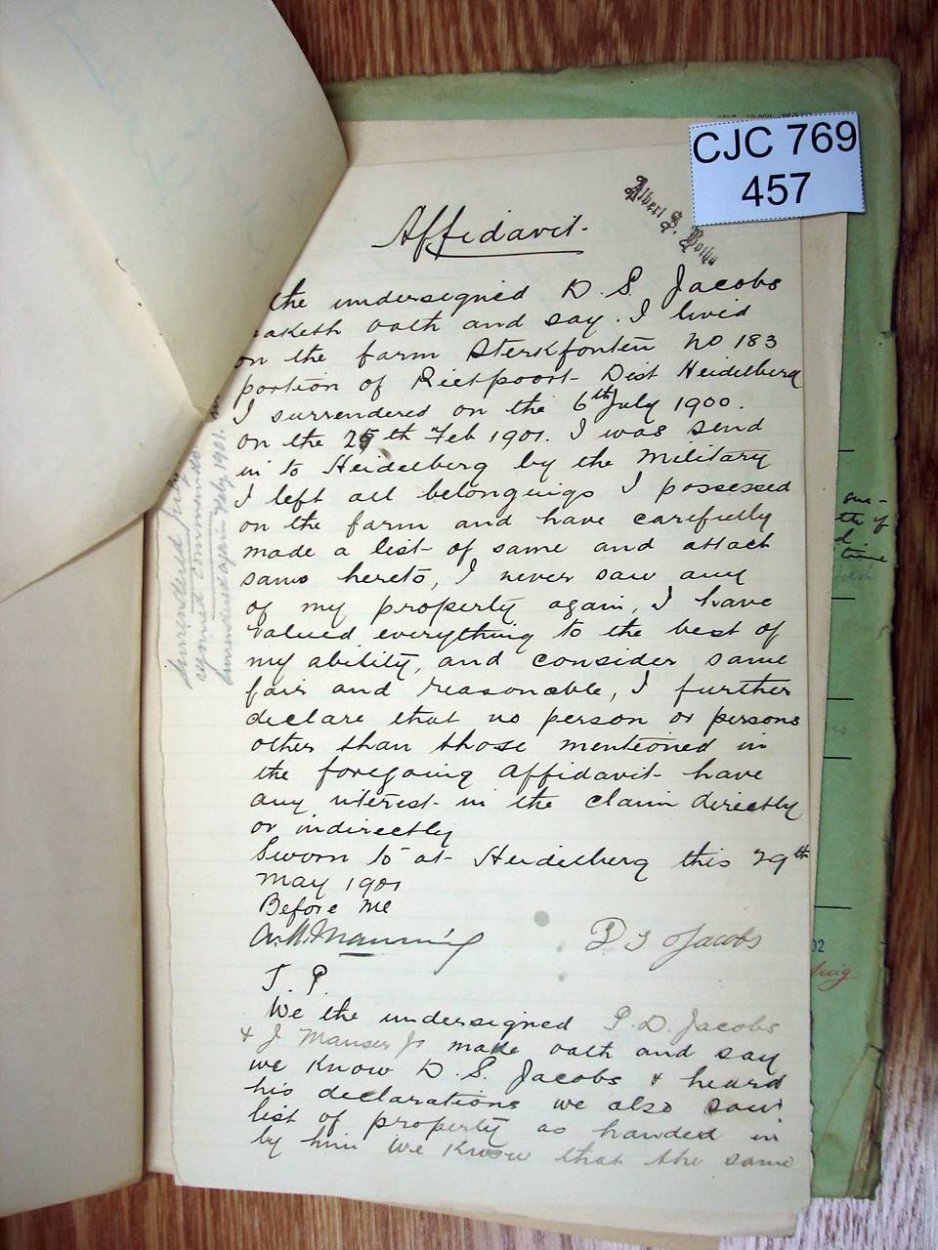 CJC 769
457
Albert S. Botha
Affidavit.
the undersigned D. S. Jacobs
maketh oath and say. I lived
on the farm Sterkfontein No 183
portion of Rietpoort Dist Heidelberg
I surrendered on the 6th July 1900.
on the 25th Feb 1901. I was send
in to Heidelberg by the Military
I left all belongings I possessed
on the farm and have carefully
made a list of same and attach
same hereto, I never saw any
of my property again, I have
valued everything to the best of
my ability, and consider same
fair and reasonable, I further
declare that no person or persons
other than those mentioned in
the foregoing affidavit have
any interest in the claim directly
or indirectly
Sworn to at Heidelberg this 29th
May 1901
Before Me
Manning
D S Jacobs
J. P.
We the undersigned P. D. Jacobs
& J Manser Jr made oath and say
we know D. S. Jacobs & heard
his declarations we also saw
list of property as handed in
by him We know that the same
surrendered July
rejoined commando
surrendered again May 1901.